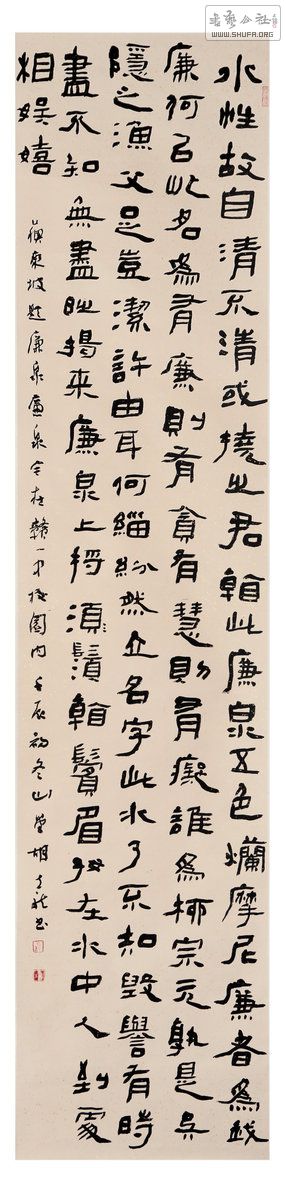 書藝公社
WWW.SHUFA.ORG
水性故自清不清或撓之君看此廉泉五色爛摩尼廉者為我
廉何㠯此名為有廉則有貪有慧則有癡誰為柳宗元孰是吳
隱之漁父足豈潔許由耳何緇紛然立名字此水了不知毀譽有時
盡不知無盡時朅來廉泉上捋須鬚看鬢眉好在水中人到處
相娛嬉
蘇東坡題廉泉廉泉今在贛一中校園內壬辰初冬山胡書